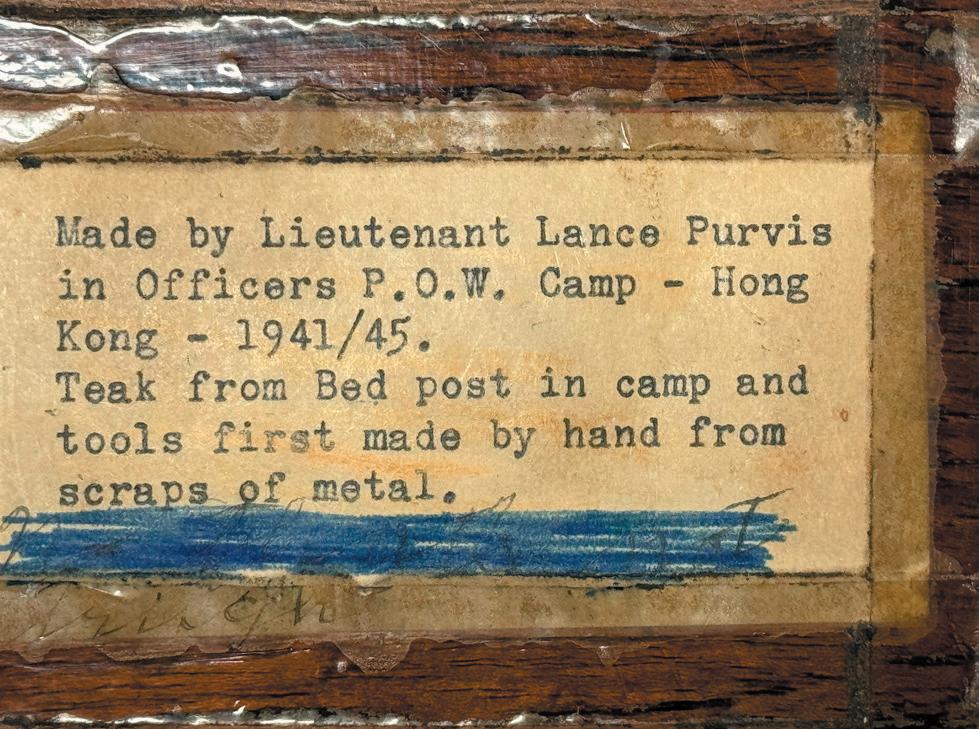 Made by Lieutenant Lance Purvis
in Officers P.O.W. Camp - Hong
Kong - 1941/45.
Teak from Bed post in camp and
tools first made by hand from
scraps of metal.